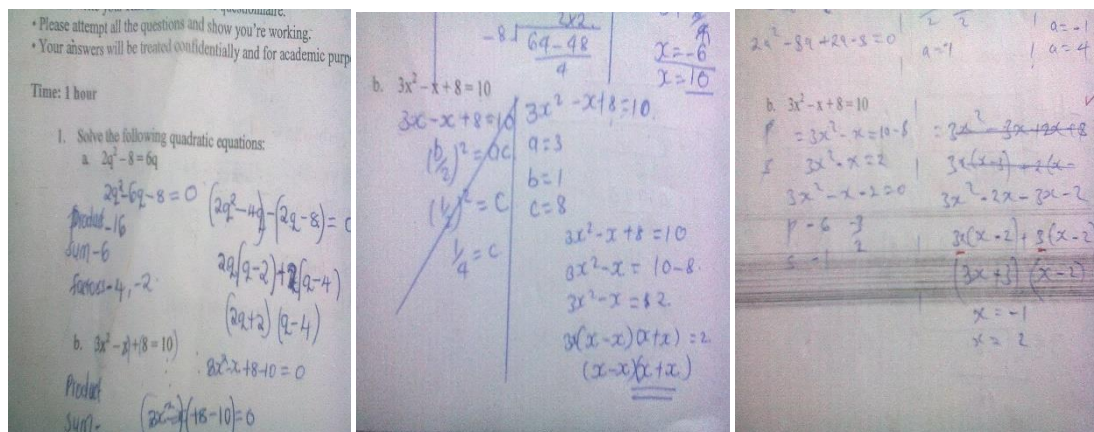 • Please attempt all the questions and show you're working.
• Your answers will be treated confidentially and for academic purp
Time: 1 hour
1. Solve the following quadratic equations:
a. 2q² - 8 = 6q
2q²-6q-8 = 0
Product -16
Sum -6
factors -4, -2
(2q²-4q)-(2q-8) =
2q(q-2)+2(q-4)
(2q+2)(q-4)
b. 3x² - x + 8 = 10
3x²-x+8-10 = 0
Product
Sum-
(+8-10)=0
-8
64-48
4
x=-6
x=10
b. 3x² - x + 8 = 10
3x-x+8=10
(b/2)² = c
(1/2)² = C
1/4 = C
3x²-x+8=10
a=3
b=1
c=8
3x²-x+8 =10
3x²-x = 10-8
3x²-x = 2
3x(x-x)(x+x) = 2
(x-x)(x+x)
2q²-8q+2q-8=0
a=-1
a=4
b. 3x² - x + 8 = 10
P = 3x²-x=10-8
S 3x²-x=2
3x²-x-2=0
P -6 -3
S -1 2
3x²-2x-3x-2
3x(x-2)+3(x-2
(3x+3)(x-2)
x = -1
x = 2